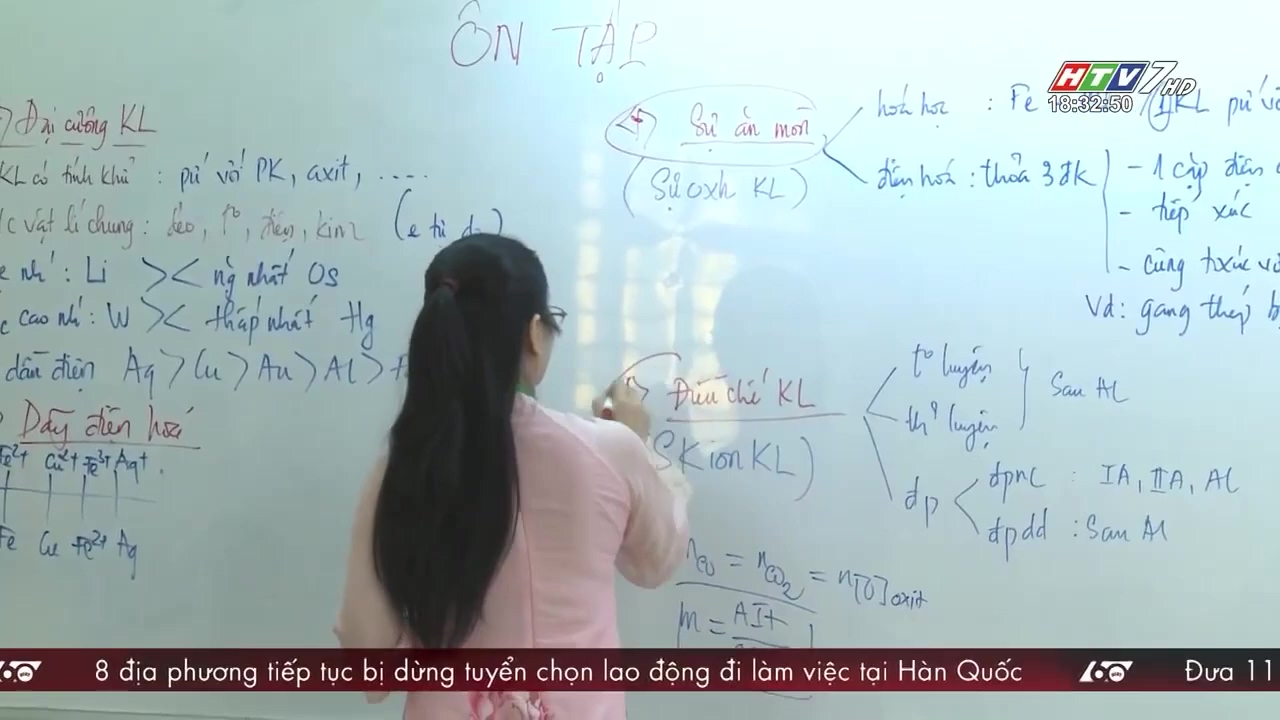 ÔN TẬP
HTV7 HD
18:32:50
Đại cương KL
KL có tính khử : pứ với PK, axit, ....
vật lí chung : dẻo, t°, điện, kim (e tự do)
Li >< nặng nhất Os
cao nhất : W >< thấp nhất Hg
dẫn điện Ag > Cu > Au > Al > F
Dãy điện hoá
Fe2+ Cu2+ Fe3+ Ag+
Fe Cu Fe2+ Ag
Sự ăn mòn
(Sự oxh KL)
hoá học : Fe KL pứ
điện hoá : thỏa 3 đk
- 1 cặp điện
- tiếp xúc
- cùng t/xúc
Vd: gang thép
Điều chế KL
SK ion KL)
t° luyện
thủy luyện
Sau Al
đp
đpnc : IA, IIA, Al
đpdd : Sau Al
nCO = nCO2 = n[O]oxit
m = AIt
8 địa phương tiếp tục bị dừng tuyển chọn lao động đi làm việc tại Hàn Quốc
60 giây
Đưa 11